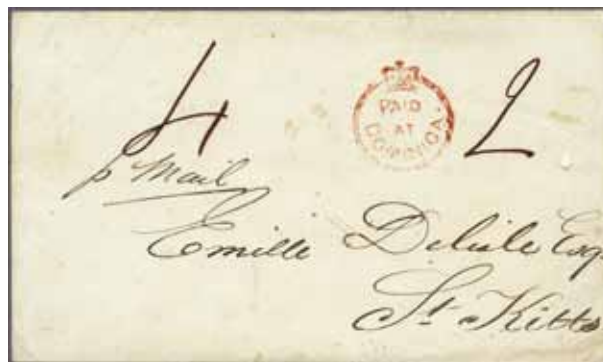 4 2
PAID
AT
DOMINICA
p Mail
Emille Delisle Esq.
St. Kitts